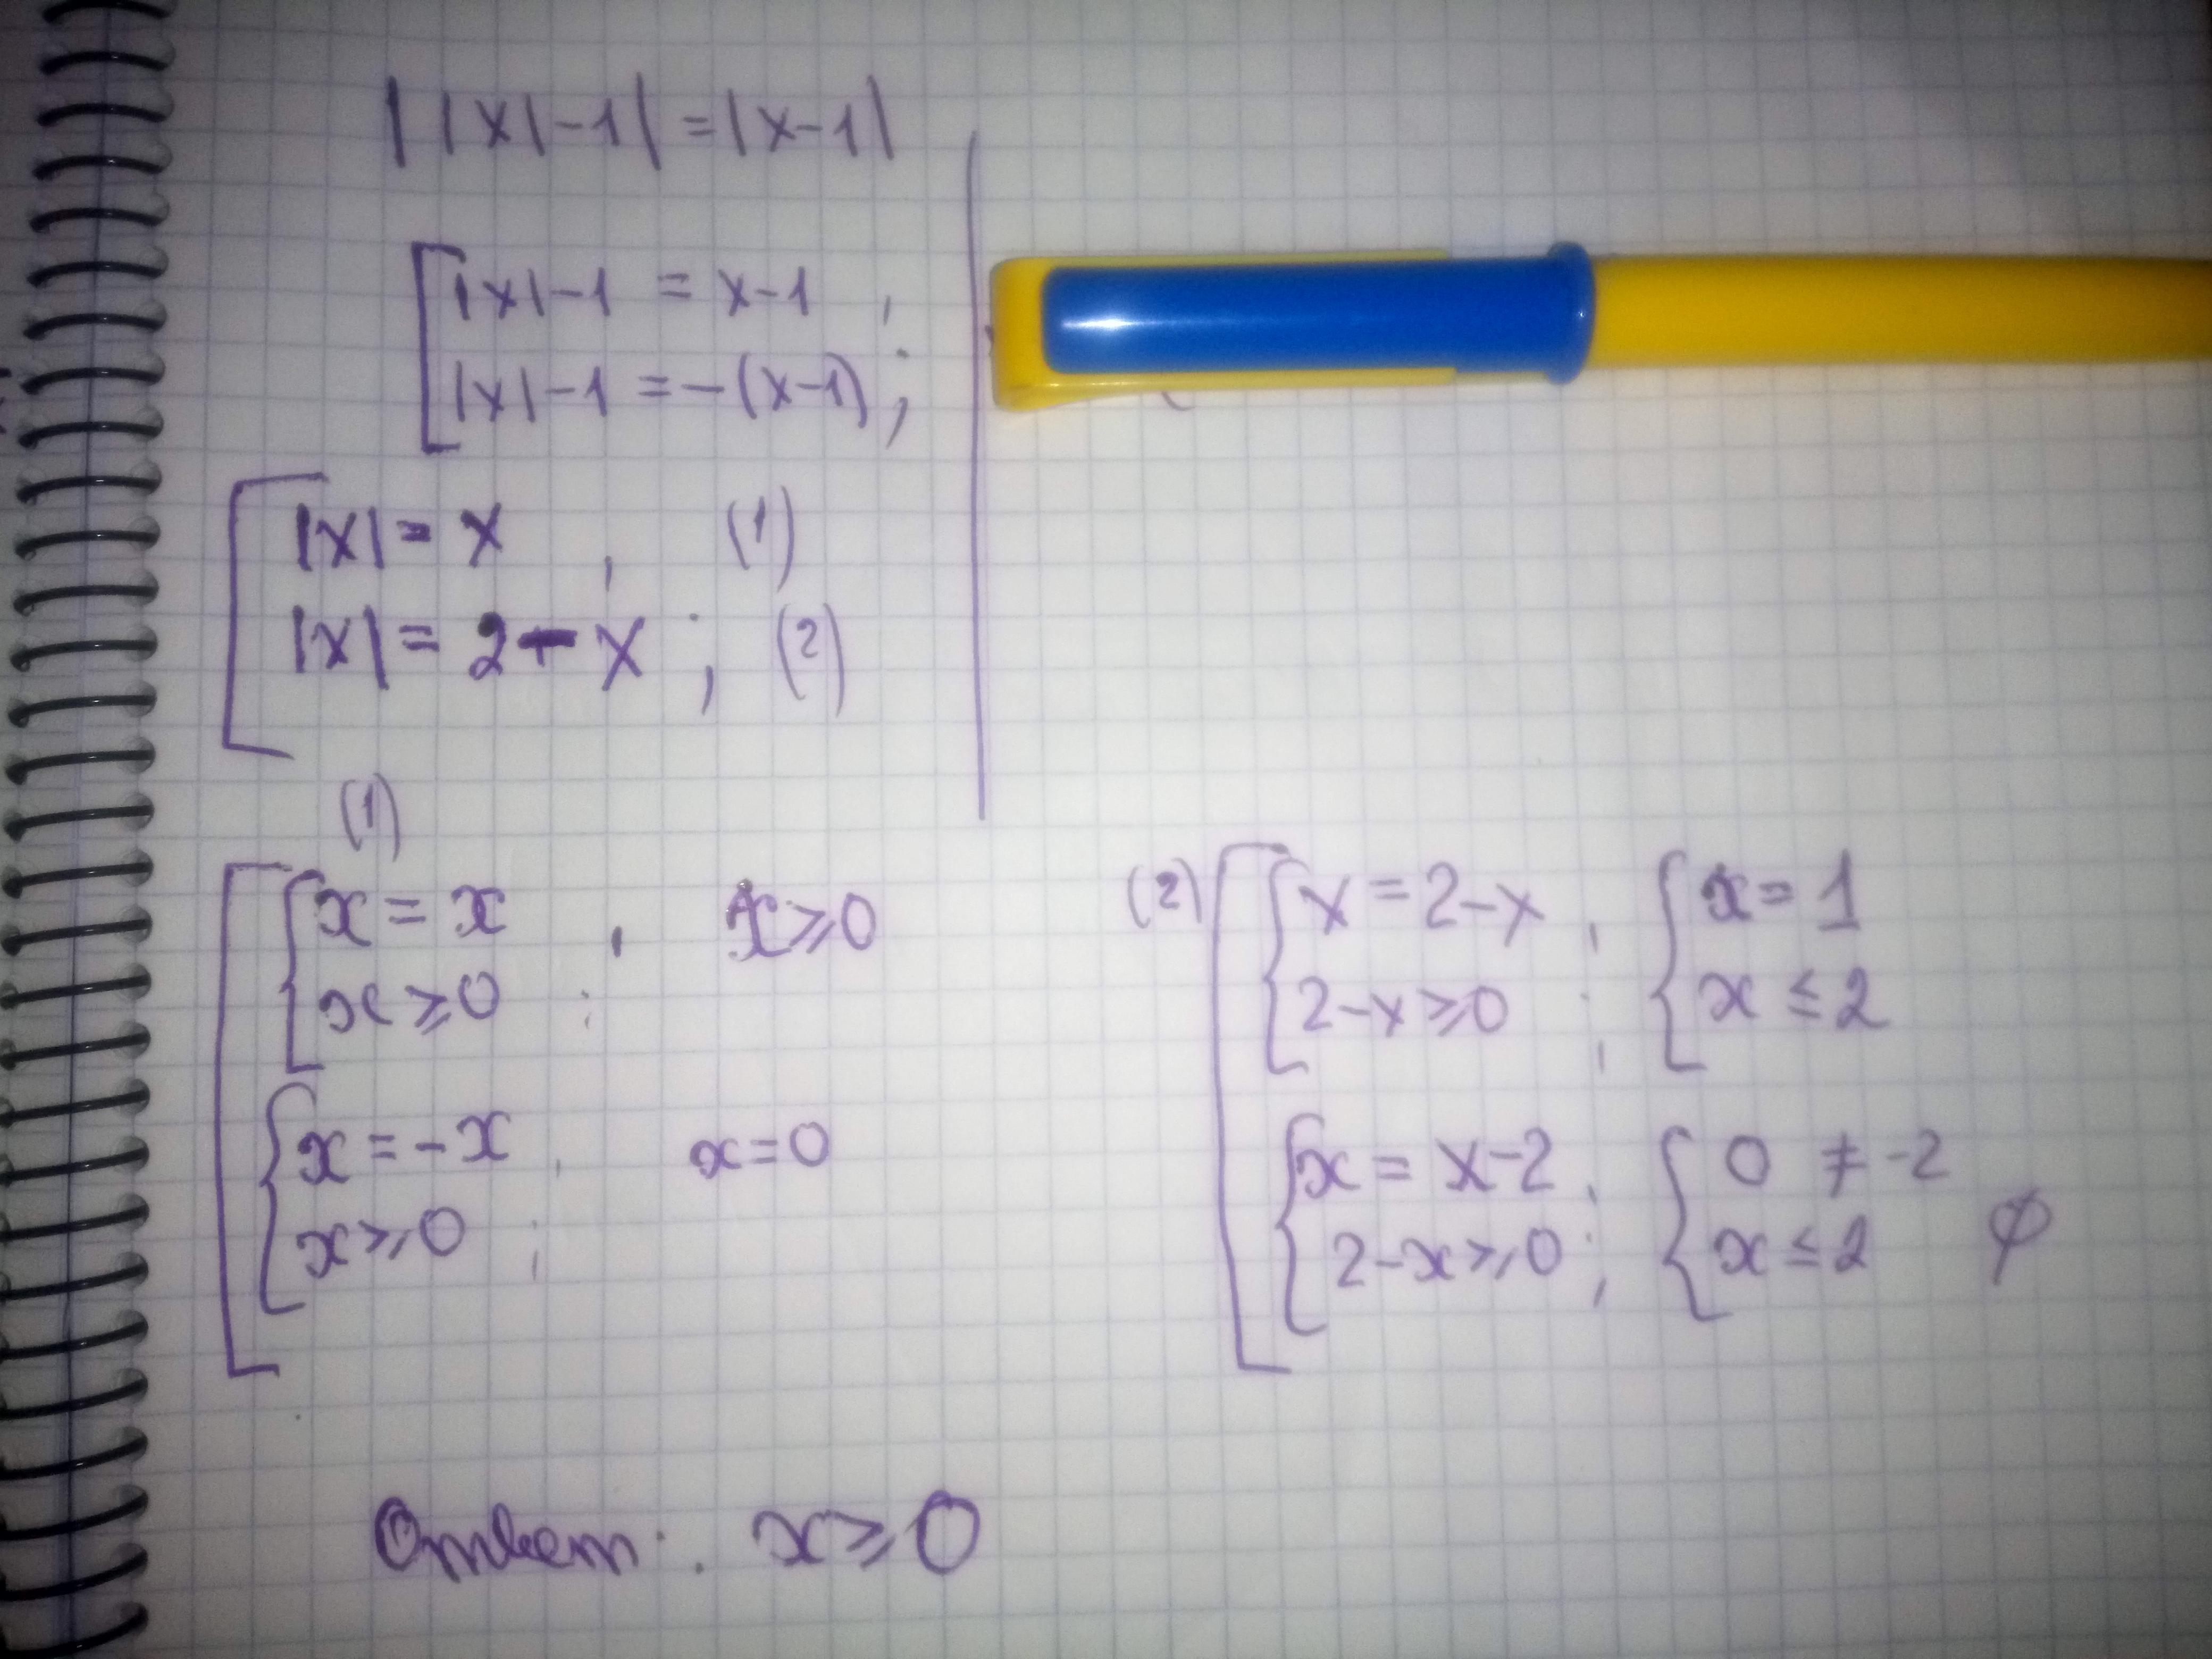 ||x|-1| = |x-1|
|x|-1 = x-1 ,
|x|-1 = -(x-1) ;
|x| = x , (1)
|x| = 2-x ; (2)
(1)
x = x , x ≥ 0
x ≥ 0 ;
x = -x , x = 0
x ≥ 0 ;
(2) x = 2-x , x = 1
2-x ≥ 0 ; x ≤ 2
x = x-2 , 0 ≠ -2
2-x ≥ 0 ; x ≤ 2 ∅
Ответ: x ≥ 0